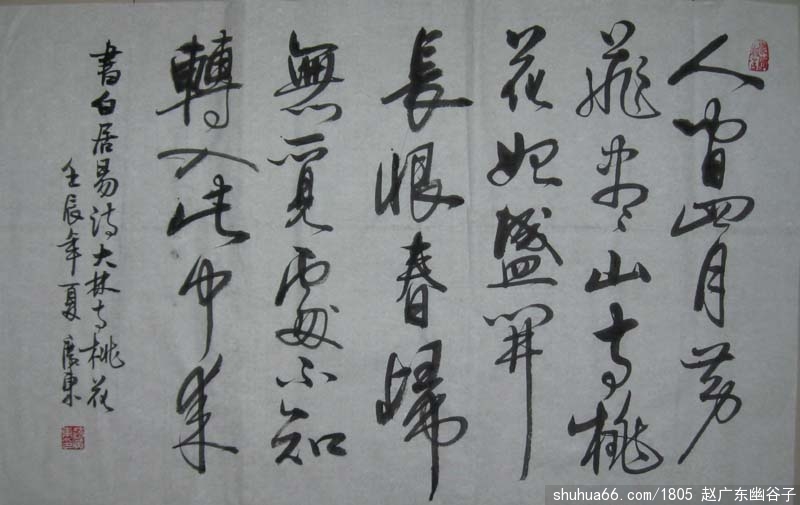 人間四月芳
菲盡山寺桃
花始盛開
長恨春歸
無覓處不知
轉入此中來
書白居易詩大林寺桃花
壬辰年夏廣東
shuhua66.com/1805 赵广东幽谷子